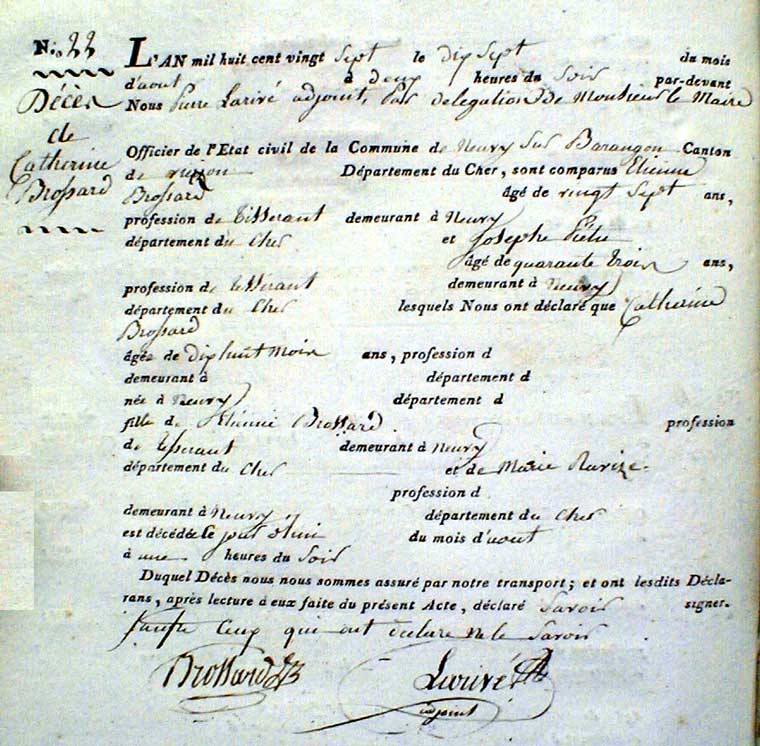 N.º 22
Décès
de
Catherine
Brossard
L'AN mil huit cent vingt sept le dix Sept du mois
d'aout à deux heures du Soir par-devant
Nous Pierre Larivé adjoint, Par delegation De Monsieur le Maire
Officier de l'Etat civil de la Commune de Neuvy Sur Barangon Canton
de vierzon Département du Cher, sont comparus Etienne
Brossard âgé de vingt Sept ans,
profession de tisserant demeurant à Neuvy
département du Cher et Josephe
âgé de quarante trois ans,
profession de tisserant demeurant à Neuvy
département du Cher lesquels Nous ont déclaré que Catherine
Brossard
âgée de dix huit Mois ans, profession d
demeurant à département d
née à Neuvy département d
fille de Etienne Brossard profession
de tisserant demeurant à Neuvy
département du Cher et de Marie
profession d
demeurant à Neuvy département du Cher
est décédée le jour d'hui du mois d'aout
à une heures du Soir
Duquel Décès nous nous sommes assuré par notre transport; et ont lesdits Décla-
rans, après lecture à eux faite du présent Acte, déclaré Savoir signer.
Ceux qui ont declaré ne le Savoir
Brossard Larivé
adjoint